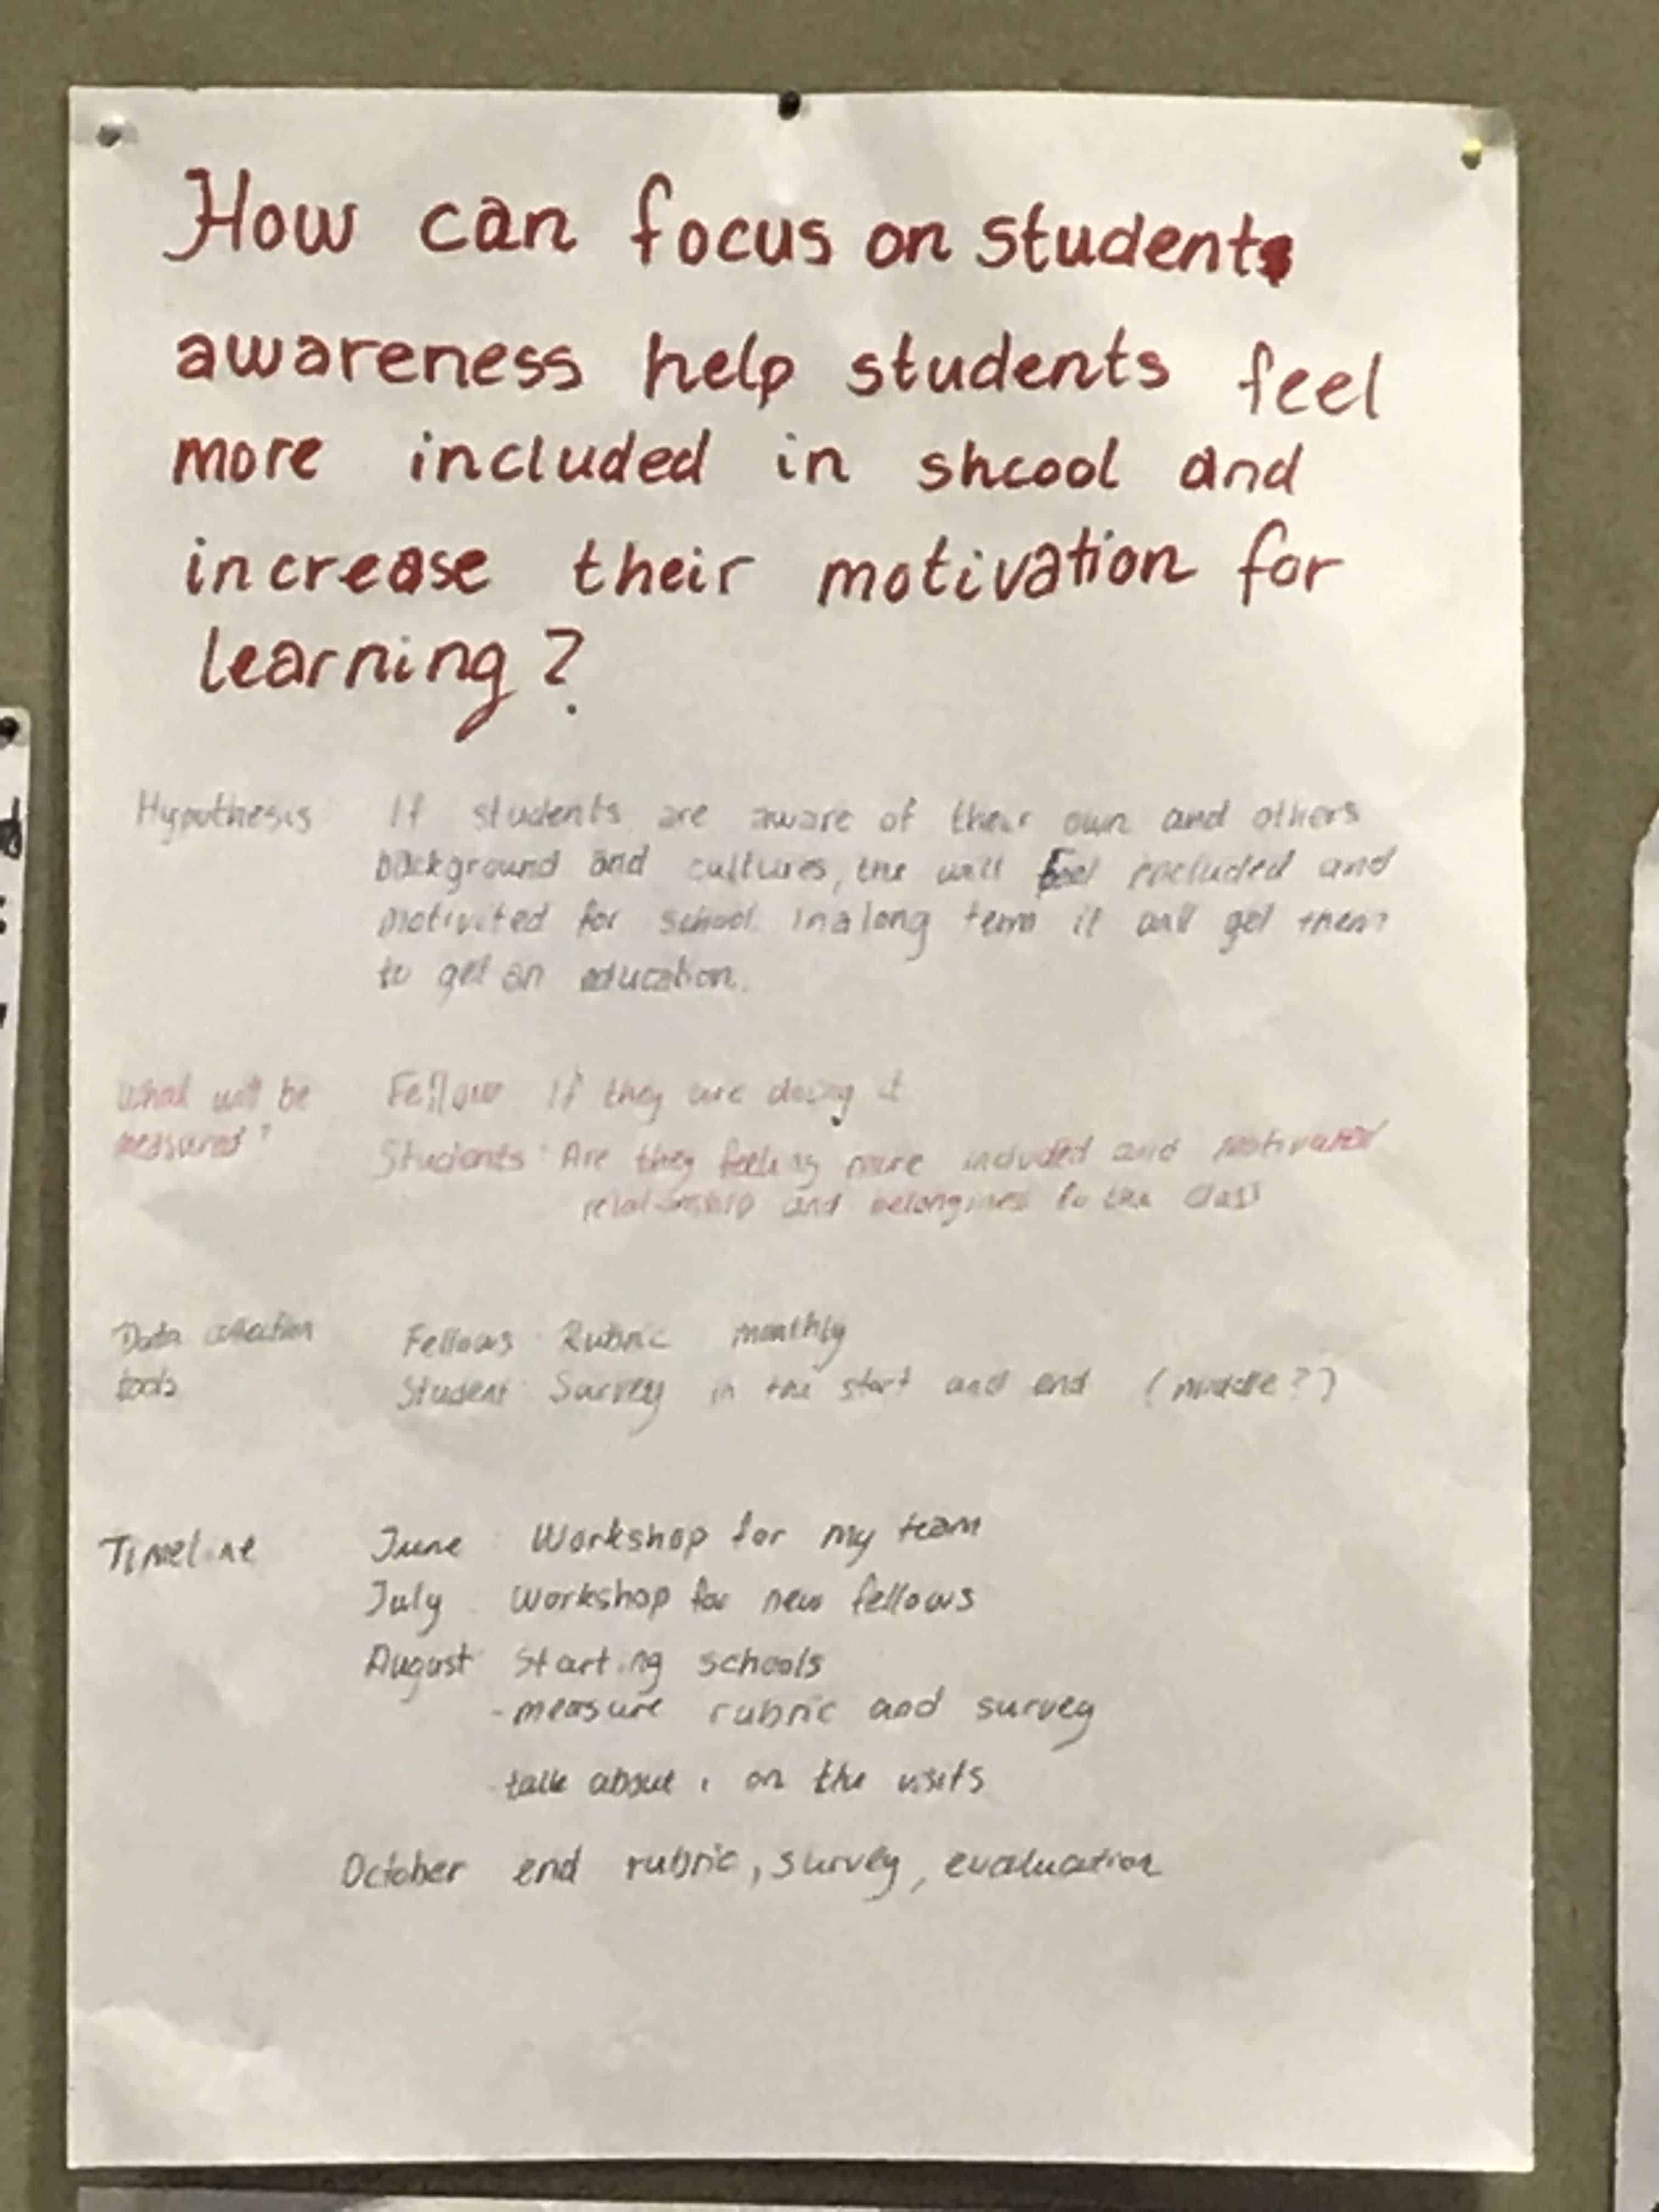 How can focus on students
awareness help students feel
more included in shcool and
increase their motivation for
learning?
Hypothesis If students are aware of their own and others
background and cultures, the will feel included and
motivited for school. In a long term it will get them
to get an education.
What will be Fellow If they are doing it
measured? Students: Are they feeling more included and motivated
relationship and belonginess to the class
Data collection Fellows Rubric monthly
tools Student Survey in the start and end (middle?)
Timeline June Workshop for my team
July Workshop for new fellows
August Starting schools
- measure rubric and survey
- talk about on the visits
October end rubric, survey, evaluation